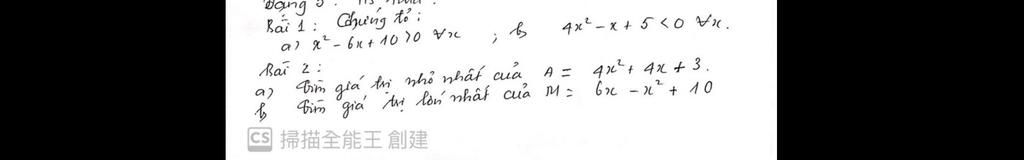 Dạng 5:
Bài 1: Chứng tỏ:
a) x² - 6x + 10 > 0 ∀x ; b 4x² - x + 5 < 0 ∀x.
Bài 2:
a) Tìm giá trị nhỏ nhất của A = 4x² + 4x + 3.
b Tìm giá trị lớn nhất của M = 6x - x² + 10
CS 掃描全能王 創建